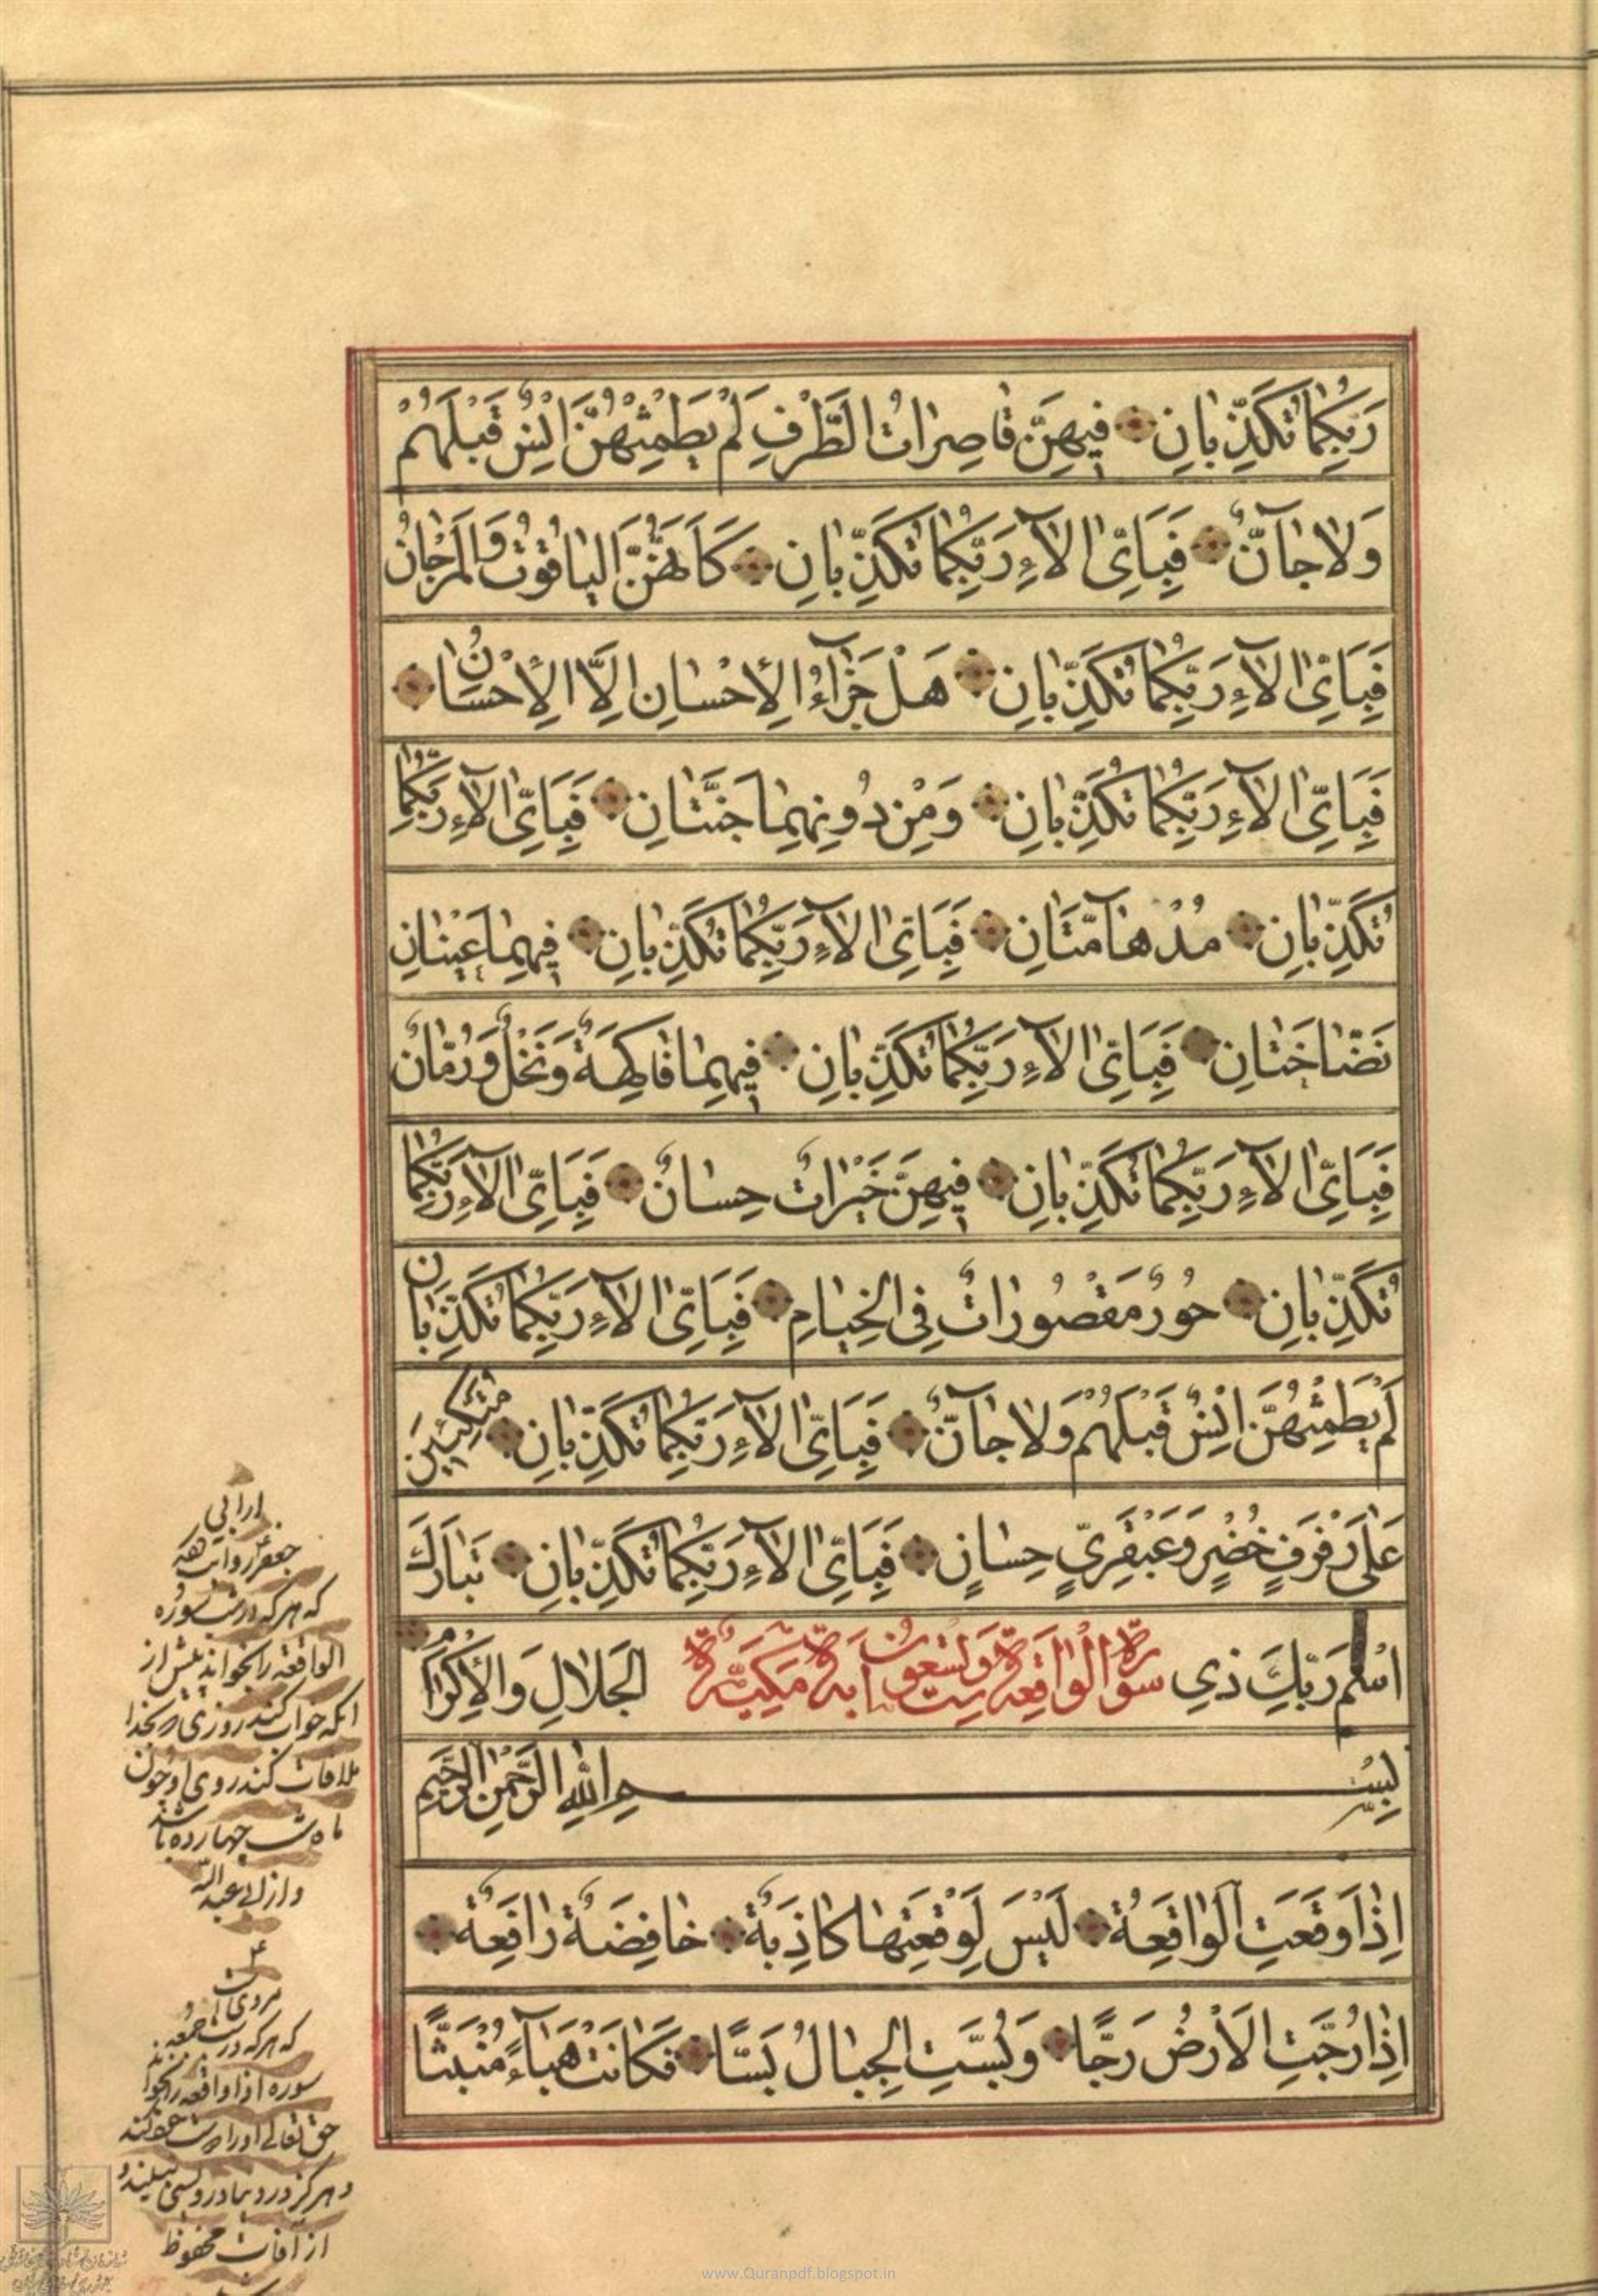 رَبِّكُمٰا تُكَذِّبٰانِ فِيهِنَّ قٰاصِرٰاتُ الطَّرْفِ لَمْ يَطْمِثْهُنَّ اِنْسٌ قَبْلَهُمْ
وَلاٰ جٰآنٌّ فَبِاَيِّ الآٰءِ رَبِّكُمٰا تُكَذِّبٰانِ كَاَنَّهُنَّ الْيٰاقُوتُ وَالْمَرْجٰانُ
فَبِاَيِّ الآٰءِ رَبِّكُمٰا تُكَذِّبٰانِ هَلْ جَزٰآءُ الْاِحْسٰانِ اِلَّا الْاِحْسٰانُ
فَبِاَيِّ الآٰءِ رَبِّكُمٰا تُكَذِّبٰانِ وَمِنْ دُونِهِمٰا جَنَّتٰانِ فَبِاَيِّ الآٰءِ رَبِّكُمٰا
تُكَذِّبٰانِ مُدْهٰآمَّتٰانِ فَبِاَيِّ الآٰءِ رَبِّكُمٰا تُكَذِّبٰانِ فِيهِمٰا عَيْنٰانِ
نَضّٰاخَتٰانِ فَبِاَيِّ الآٰءِ رَبِّكُمٰا تُكَذِّبٰانِ فِيهِمٰا فٰاكِهَةٌ وَنَخْلٌ وَرُمّٰانٌ
فَبِاَيِّ الآٰءِ رَبِّكُمٰا تُكَذِّبٰانِ فِيهِنَّ خَيْرٰاتٌ حِسٰانٌ فَبِاَيِّ الآٰءِ رَبِّكُمٰا
تُكَذِّبٰانِ حُورٌ مَقْصُورٰاتٌ فِي الْخِيٰامِ فَبِاَيِّ الآٰءِ رَبِّكُمٰا تُكَذِّبٰانِ
لَمْ يَطْمِثْهُنَّ اِنْسٌ قَبْلَهُمْ وَلاٰ جٰآنٌّ فَبِاَيِّ الآٰءِ رَبِّكُمٰا تُكَذِّبٰانِ مُتَّكِئِينَ
عَلٰى رَفْرَفٍ خُضْرٍ وَعَبْقَرِيٍّ حِسٰانٍ فَبِاَيِّ الآٰءِ رَبِّكُمٰا تُكَذِّبٰانِ تَبٰارَكَ
اسْمُ رَبِّكَ ذِي سورة الواقعة ست وتسعون اية مكية الْجَلاٰلِ وَالْاِكْرٰامِ
بِسْمِ اللهِ الرَّحْمٰنِ الرَّحِيمِ
اِذٰا وَقَعَتِ الْوٰاقِعَةُ لَيْسَ لِوَقْعَتِهٰا كٰاذِبَةٌ خٰافِضَةٌ رٰافِعَةٌ
اِذٰا رُجَّتِ الْاَرْضُ رَجًّا وَبُسَّتِ الْجِبٰالُ بَسًّا فَكٰانَتْ هَبٰآءً مُنْبَثًّا
از ابی
جعفر روایت
که هرکه در شب سوره
الواقعه را بخواند پیش از
انکه خواب کند روزی که بخدا
ملاقات کند روی او چون
ماه شب چهارده باشد
و از ابی عبد الله
مروی
که هرکه در شب جمعه
سوره اذا واقعه را بخواند
حق تعالی او را دوست
و هرکز در دنیا درویشی نبیند و
از آفات محفوظ
www.Quranpdf.blogspot.in